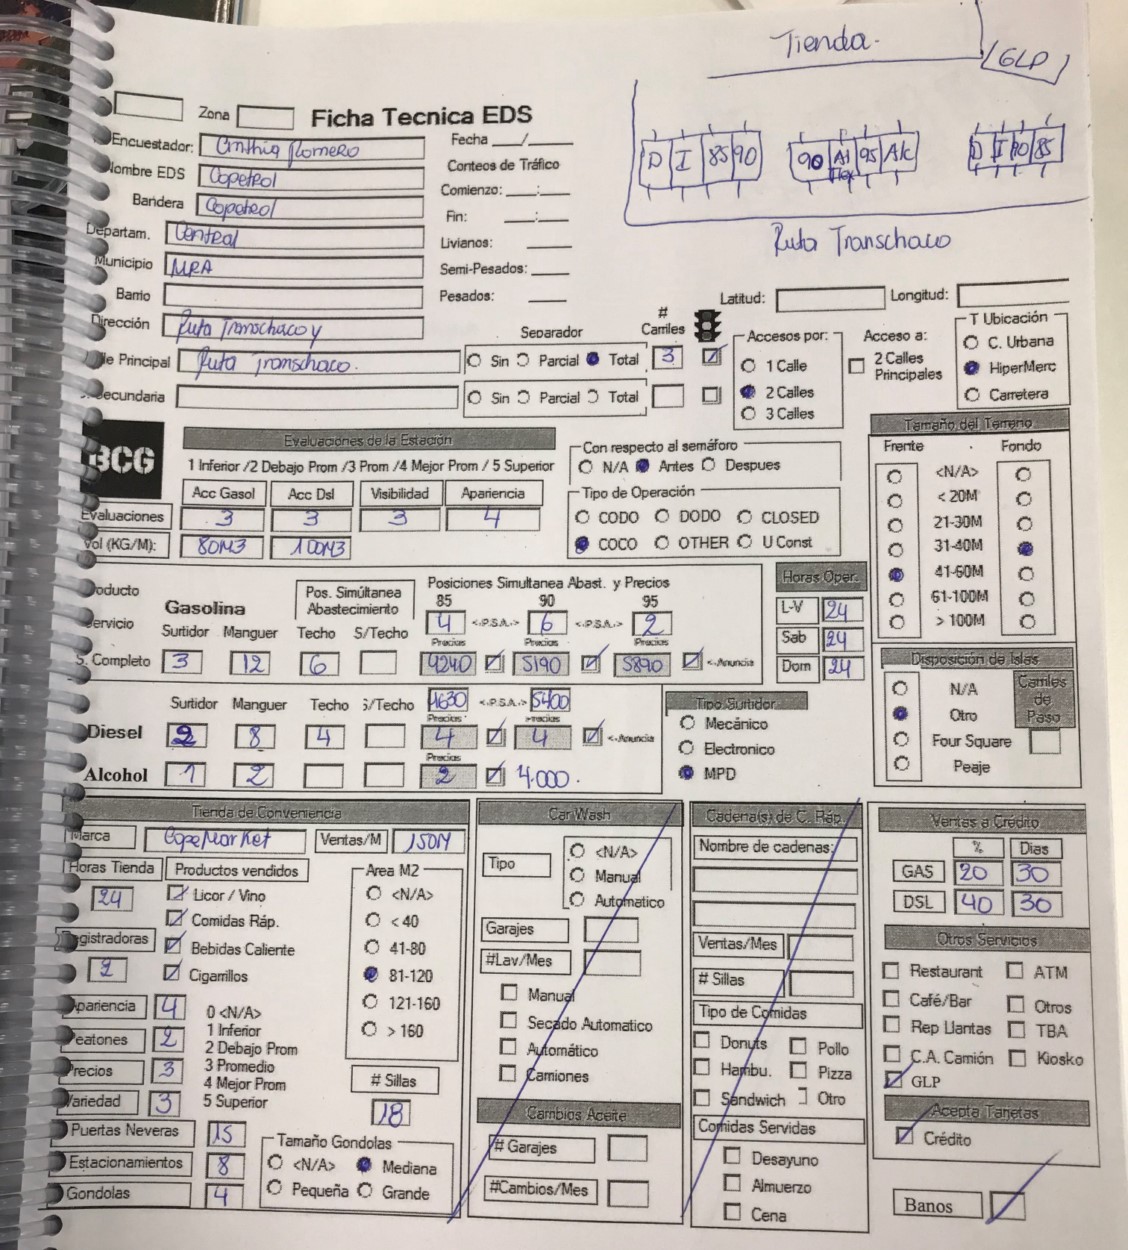 Tienda.
GLP
D I 85 90
90 Al Flex 95 Alc
D I 90 85
Ruta Transchaco
Zona
Ficha Tecnica EDS
Encuestador: Cinthia Romero
Fecha ___/___
Nombre EDS Copetrol
Conteos de Tráfico
Bandera Copetrol
Comienzo: ___:___
Departam. Central
Fin: ___:___
Municipio MRA
Livianos: ____
Semi-Pesados: ____
Barrio
Pesados: ___
Latitud:
Longitud:
Dirección Ruta Transchaco y
Separador
# Carriles
Principal Ruta Transchaco.
Sin Parcial Total 3
Secundaria
Sin Parcial Total
Accesos por:
1 Calle
2 Calles
3 Calles
Acceso a:
2 Calles Principales
T Ubicación
C. Urbana
HiperMerc
Carretera
BCG
Evaluaciones de la Estación
1 Inferior /2 Debajo Prom /3 Prom /4 Mejor Prom / 5 Superior
Acc Gasol Acc Dsl Visibilidad Apariencia
Evaluaciones 3 3 3 4
Vol (KG/M): 80M3 100M3
Con respecto al semáforo
N/A Antes Despues
Tipo de Operación
CODO DODO CLOSED
COCO OTHER U Const
Tamaño del Terreno
Frente Fondo
<N/A>
< 20M
21-30M
31-40M
41-60M
61-100M
> 100M
Producto
Gasolina
Pos. Simúltanea Abastecimiento
Posiciones Simultanea Abast. y Precios
85 90 95
Servicio
4 <.P.S.A.> 6 <.P.S.A.> 2
Surtidor Manguer Techo S/Techo
Precios Precios Precios
S. Completo 3 12 6 4240 5190 5890 <-Anuncia
Horas Oper.
L-V 24
Sab 24
Dom 24
Surtidor Manguer Techo S/Techo 4630 <.P.S.A.> 5400
Precios Precios
Diesel 2 8 4 4 4 <-Anuncia
Precios
Alcohol 1 2 2 4.000.
Tipo Surtidor
Mecánico
Electronico
MPD
Disposición de Islas
N/A
Otro
Four Square
Peaje
Carriles de Paso
Tienda de Conveniencia
Marca CopeMarket Ventas/M 150M
Horas Tienda Productos vendidos
24
Licor / Vino
Comidas Ráp.
Registradoras
Bebidas Caliente
2
Cigarrillos
Area M2
<N/A>
< 40
41-80
81-120
121-160
> 160
Apariencia 4
Peatones 2
Precios 3
Variedad 3
0 <N/A>
1 Inferior
2 Debajo Prom
3 Promedio
4 Mejor Prom
5 Superior
# Sillas
18
Puertas Neveras 15
Estacionamientos 8
Gondolas 4
Tamaño Gondolas
<N/A> Mediana
Pequeña Grande
Car Wash
Tipo
<N/A>
Manual
Automatico
Garajes
#Lav/Mes
Manual
Secado Automatico
Automático
Camiones
Cambios Aceite
# Garajes
#Cambios/Mes
Cadena(s) de C. Ráp.
Nombre de cadenas:
Ventas/Mes
# Sillas
Tipo de Comidas
Donuts Pollo
Hambu. Pizza
Sandwich Otro
Comidas Servidas
Desayuno
Almuerzo
Cena
Ventas a Crédito
% Dias
GAS 20 30
DSL 40 30
Otros Servicios
Restaurant ATM
Café/Bar Otros
Rep Llantas TBA
C.A. Camión Kiosko
GLP
Acepta Tarjetas
Crédito
Banos